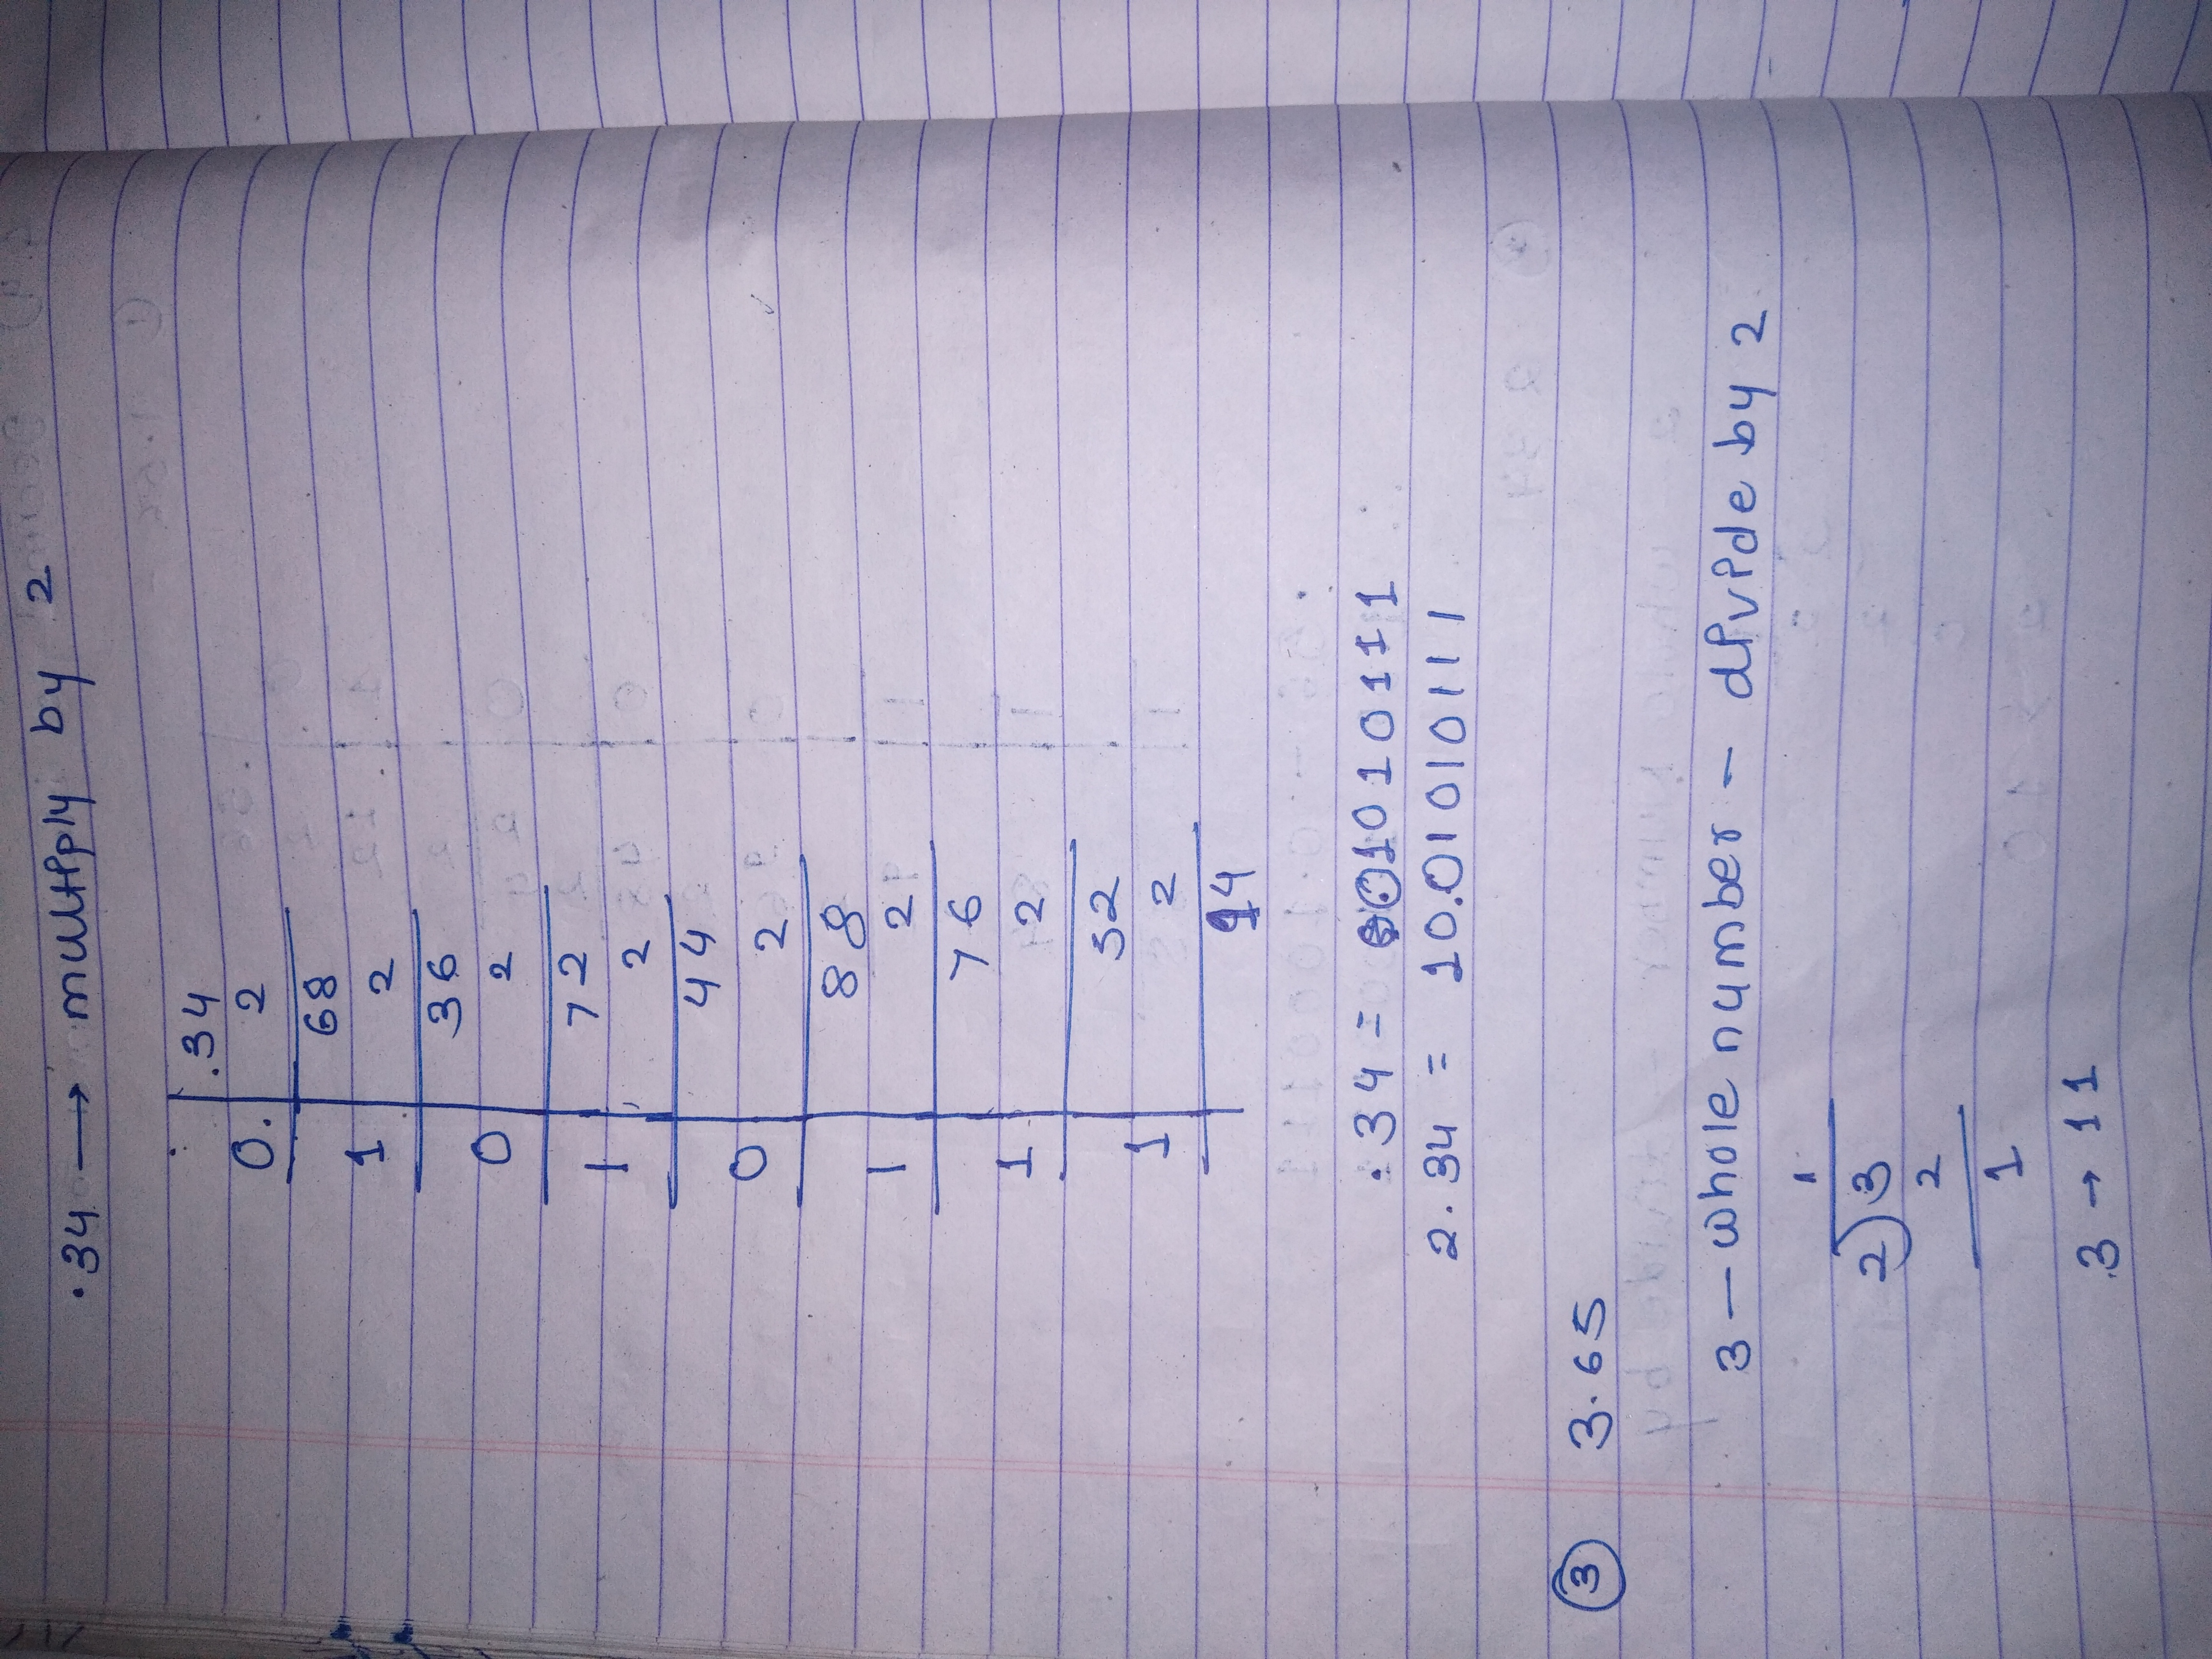 .34 → multiply by 2
.34
0. 2
68
1 2
36
0 2
72
1 2
44
0 2
88
1 2
76
1 2
52
1 2
94
.34 = 01010111
2.34 = 10.01010111
3 3.65
3 — whole number — divide by 2
1
2)3
2
1
3 → 11